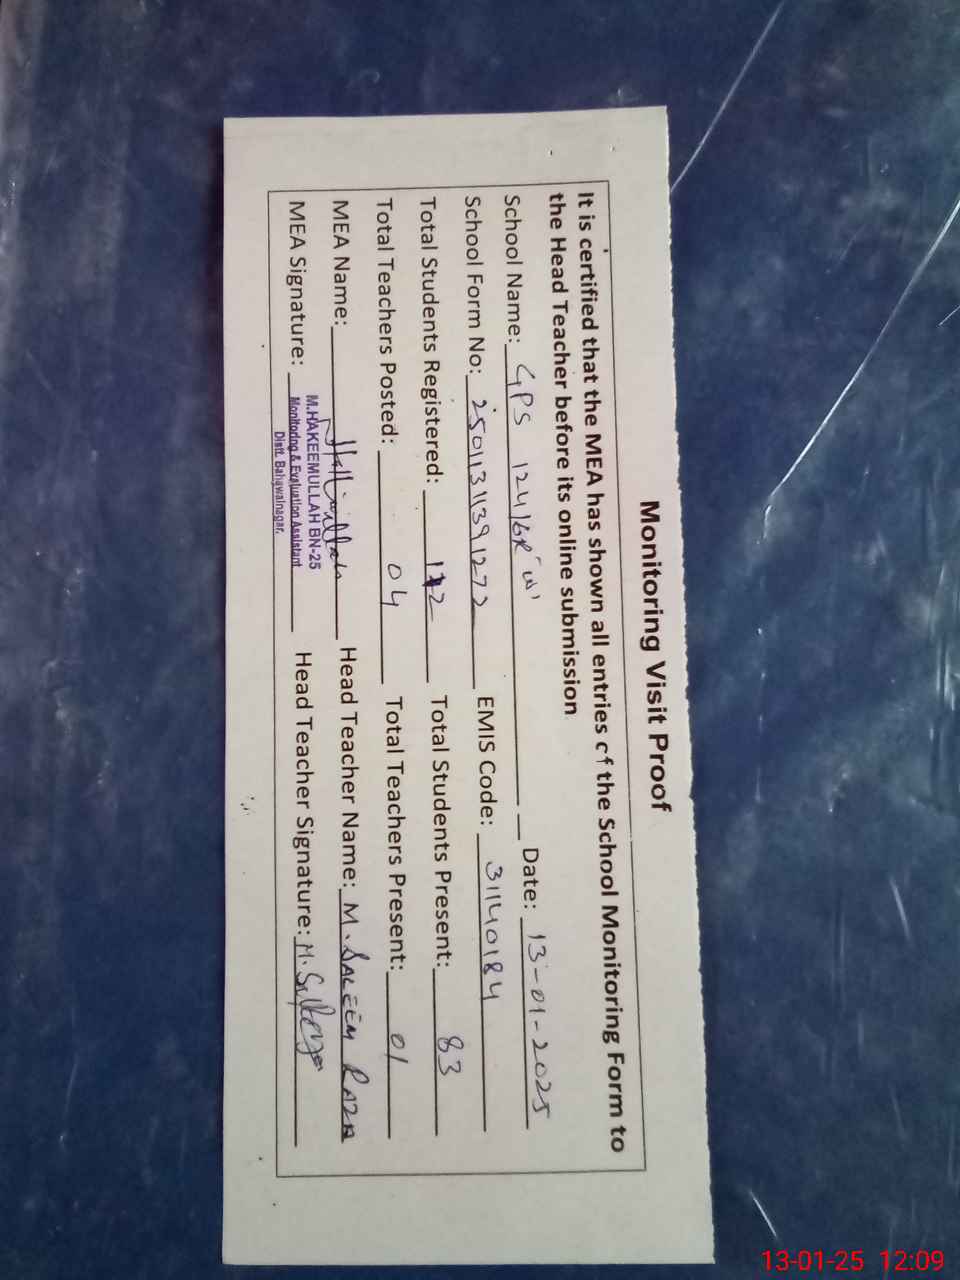 Monitoring Visit Proof
It is certified that the MEA has shown all entries of the School Monitoring Form to
the Head Teacher before its online submission
School Name: GPS 124/6R 'W' Date: 13-01-2025
School Form No: 25011311391272 EMIS Code: 31140184
Total Students Registered: 112 Total Students Present: 83
Total Teachers Posted: 04 Total Teachers Present: 01
MEA Name: Head Teacher Name: M. SALEEM RAZA
MEA Signature: Head Teacher Signature: M. Saleem
M.HAKEEMULLAH BN-25
Monitoring & Evaluation Assistant
Distt. Bahawalnagar.
13-01-25 12:09